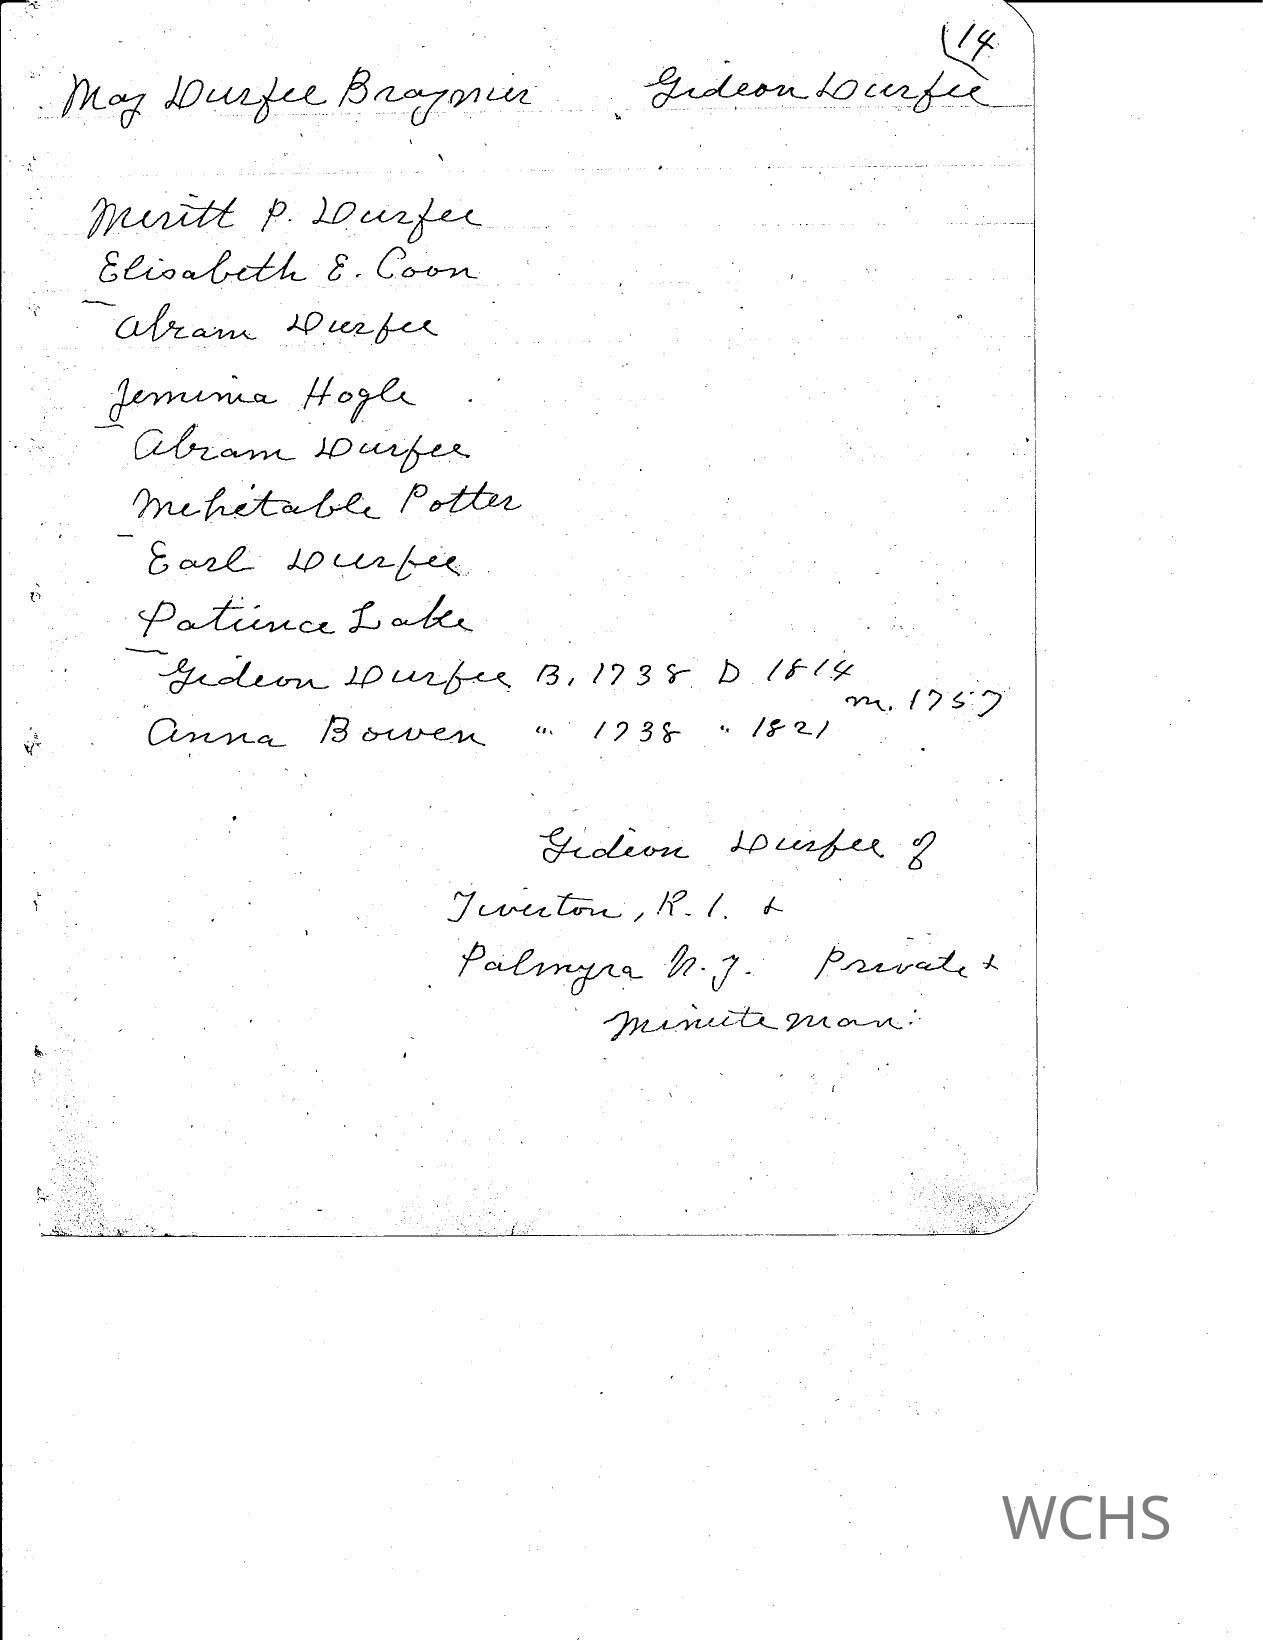 14
May Durfee Braymer Gideon Durfee
Meritt P. Durfee
Elisabeth E. Coon
Abram Durfee
Jemima Hogle
Abram Durfee
Mehetable Potter
Earl Durfee
Patience Lake
Gideon Durfee B. 1738 D 1814
m. 1757
Anna Bowen " 1738 " 1821
Gideon Durfee of
Tiverton, R.I. &
Palmyra N.Y. Private &
Minute Man.
WCHS